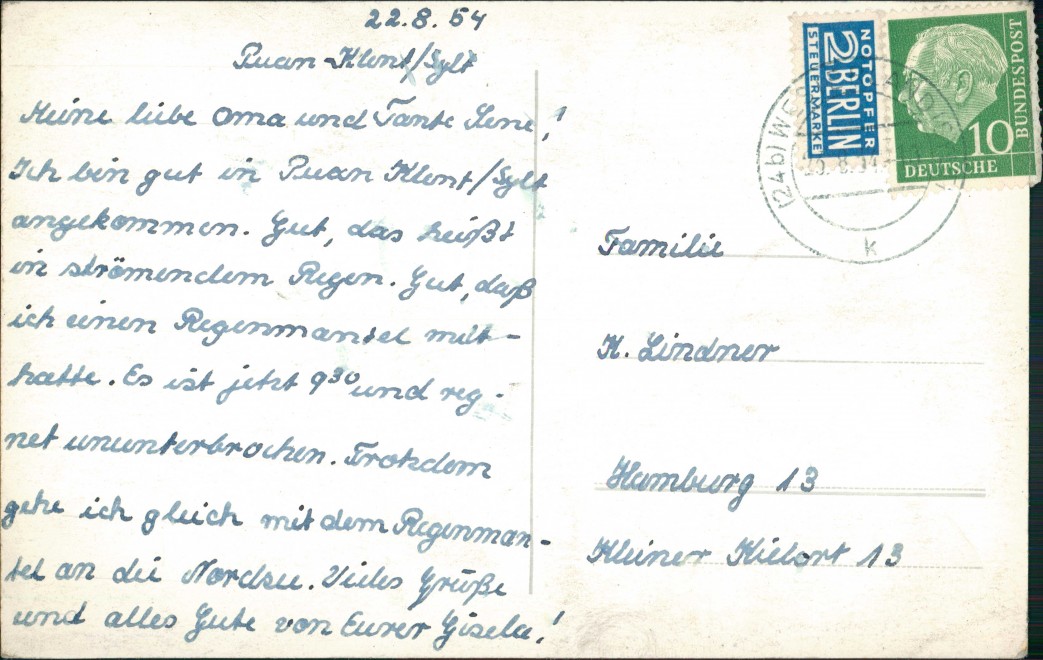 22.8.54
Puan-Klent/Sylt
Meine liebe Oma und Tante Lene!
Ich bin gut in Puan Klent/Sylt
angekommen. Gut, das heißt
in strömendem Regen. Gut, daß
ich einen Regenmantel mit-
hatte. Es ist jetzt 9³⁰ und reg-
net ununterbrochen. Trotzdem
gehe ich gleich mit dem Regenman-
tel an die Nordsee. Vieles Grüße
und alles Gute von Eurer Gisela!
NOTOPFER
2 BERLIN
STEUERMARKE
DEUTSCHE
BUNDESPOST
10
(24b) WES
8.54
k
Familie
K. Lindner
Hamburg 13
Kleiner Kielort 13